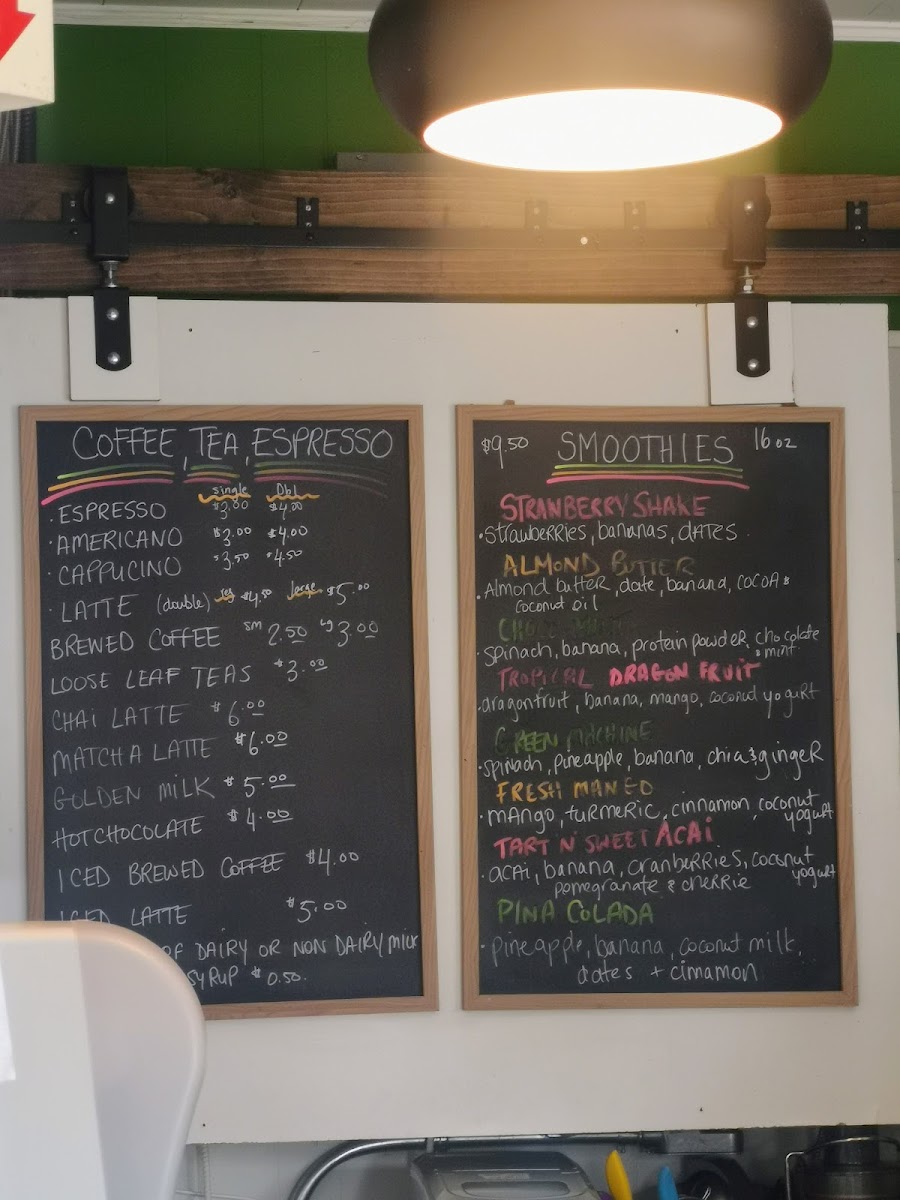 COFFEE, TEA, ESPRESSO
single Dbl
ESPRESSO $3.00 $4.00
AMERICANO $3.00 $4.00
CAPPUCINO $3.50 $4.50
LATTE (double) reg $4.50 large $5.00
BREWED COFFEE sm 2.50 lg 3.00
LOOSE LEAF TEAS $3.00
CHAI LATTE $6.00
MATCHA LATTE $6.00
GOLDEN MILK $5.00
HOTCHOCOLATE $4.00
ICED BREWED COFFEE $4.00
ICED LATTE $5.00
OF DAIRY OR NON DAIRY MILK
SYRUP $0.50.
$9.50 SMOOTHIES 16 oz
STRANBERRY SHAKE
• Strawberries, bananas, DATES
ALMOND BUTTER
• Almond butter, date, banana, cocoa &
coconut oil
CHOCO MINT
spinach, banana, protein powder, chocolate
& mint
TROPICAL DRAGON FRUIT
• dragonfruit, banana, mango, coconut yogurt
GREEN MACHINE
• spinach, pineapple, banana, chia & ginger
FRESH MANGO
• mango, turmeric, cinnamon, coconut
yogurt
TART N' SWEET ACAI
• acai, banana, cranberries, coconut
yogurt
pomegranate & cherrie
PINA COLADA
• pineapple, banana, coconut milk,
dates + cinamon